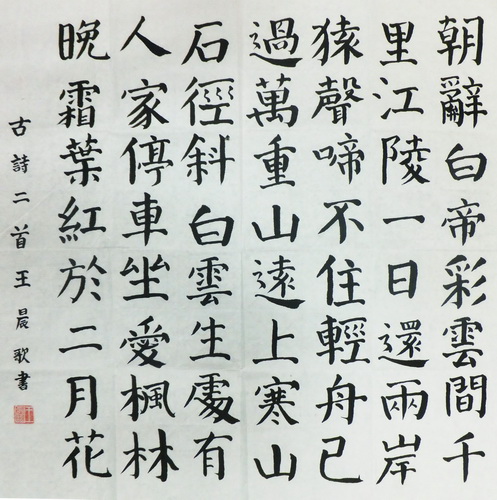 朝辭白帝彩雲間千
里江陵一日還兩岸
猿聲啼不住輕舟已
過萬重山遠上寒山
石徑斜白雲生處有
人家停車坐愛楓林
晚霜葉紅於二月花
古詩二首王晨歌書